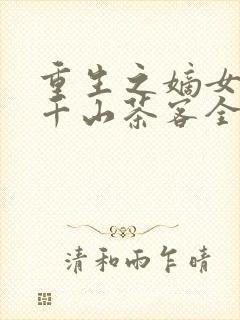 重生之嫡女
千山茶客全
清和雨乍晴